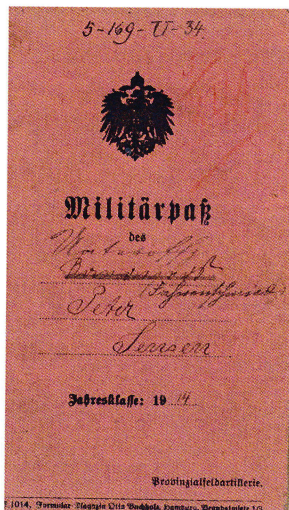 5-169-U-34
Militärpaß
des
Unteroff
(Fahnenschmied)
Peter
Jensen
Jahresklasse: 19 14
Provinzialfeldartillerie.
1014. Formular-Magazin Otto Buchholz, Hamburg,